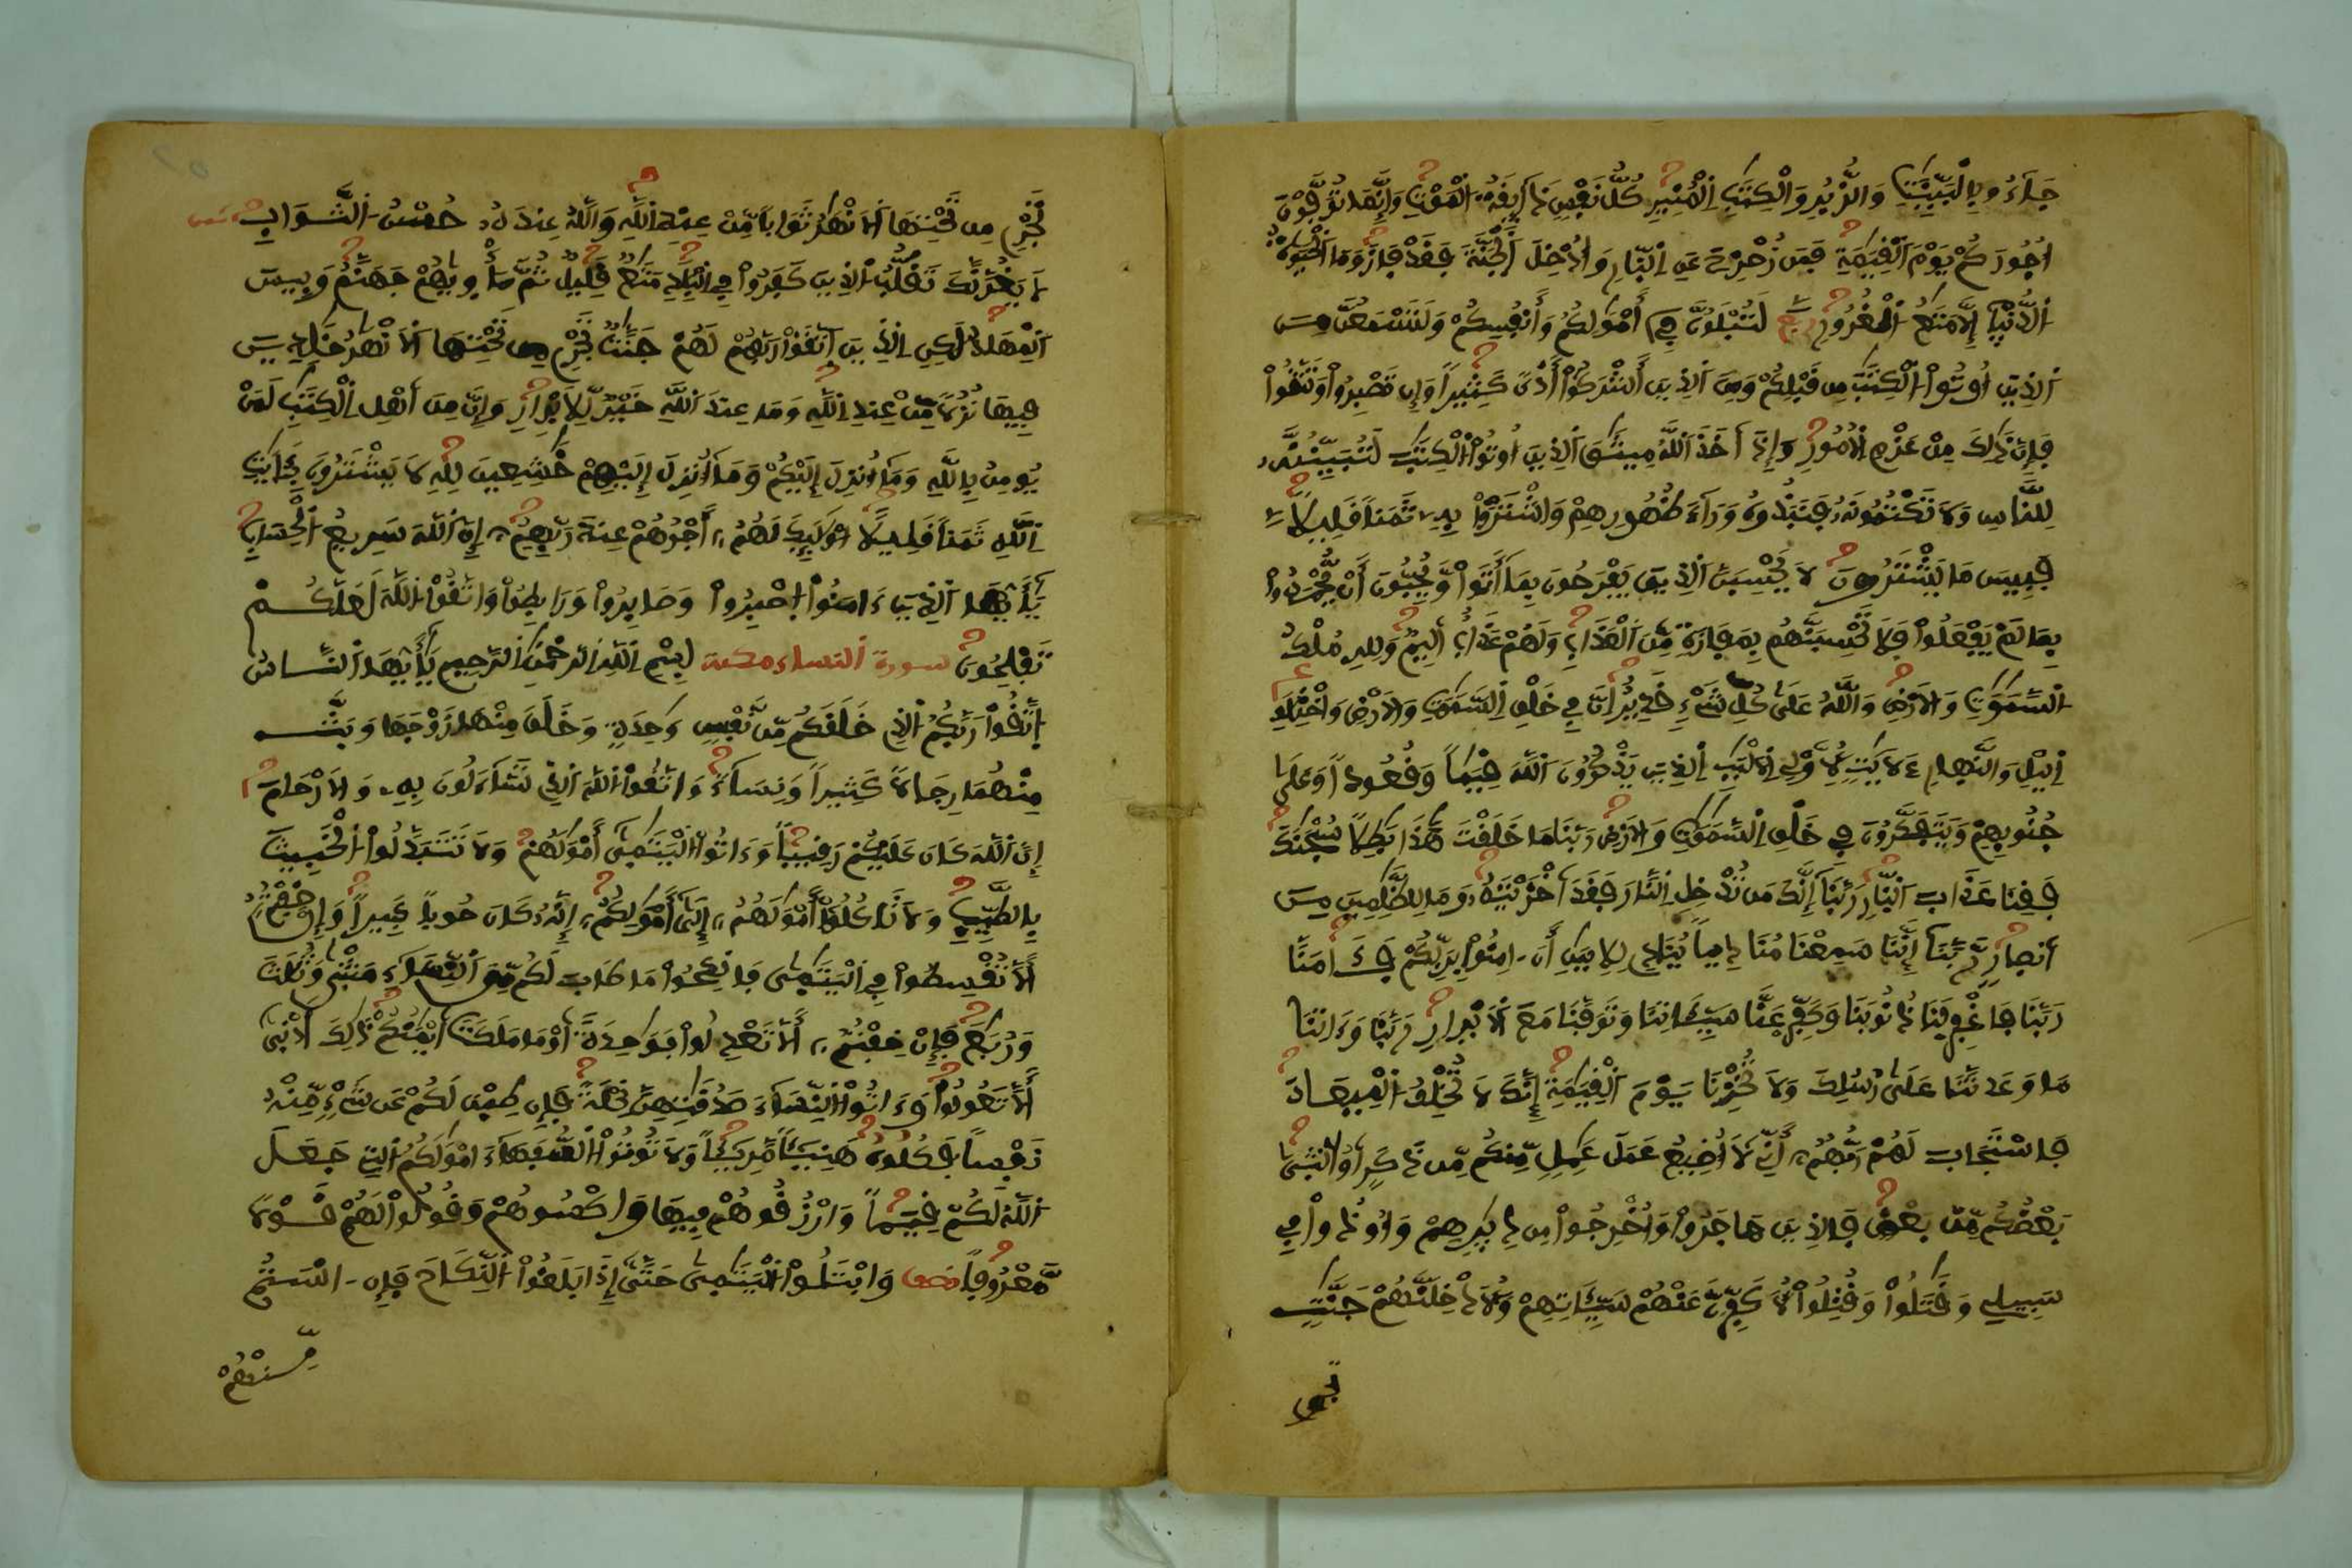 جَآءُو بِالْبَيِّنَٰتِ وَالزُّبُرِ وَالْكِتَٰبِ الْمُنِيرِ كُلُّ نَفْسٍ ذَآئِقَةُ الْمَوْتِ وَإِنَّمَا تُوَفَّوْنَ
أُجُورَكُمْ يَوْمَ الْقِيَٰمَةِ فَمَن زُحْزِحَ عَنِ النّ۪ارِ وَأُدْخِلَ الْجَنَّةَ فَقَدْ فَازَ وَمَا الْحَيَوٰةُ
الدُّنْي۪ا إِلَّا مَتَٰعُ الْغُرُورِ لَتُبْلَوُنَّ فِي أَمْوَٰلِكُمْ وَأَنفُسِكُمْ وَلَتَسْمَعُنَّ مِنَ
الذِينَ أُوتُوا الْكِتَٰبَ مِن قَبْلِكُمْ وَمِنَ الذِينَ أَشْرَكُوا أَذىً كَثِيراً وَإِن تَصْبِرُوا وَتَتَّقُوا
فَإِنَّ ذَٰلِكَ مِنْ عَزْمِ الْأُمُورِ وَإِذَ اَخَذَ اللَّهُ مِيثَٰقَ الذِينَ أُوتُوا الْكِتَٰبَ لَتُبَيِّنُنَّهُ
لِلنَّاسِ وَلَا تَكْتُمُونَهُ فَنَبَذُوهُ وَرَآءَ ظُهُورِهِمْ وَاشْتَرَوْا بِهِ ثَمَناً قَلِيلًا
فَبِيسَ مَا يَشْتَرُونَ لَا يَحْسِبَنَّ الذِينَ يَفْرَحُونَ بِمَا أَتَوا وَّيُحِبُّونَ أَنْ يُّحْمَدُوا
بِمَا لَمْ يَفْعَلُوا فَلَا تَحْسِبَنَّهُم بِمَفَازَةٍ مِّنَ الْعَذَابِ وَلَهُمْ عَذَابٌ اَلِيمٌ وَلِلهِ مُلْكُ
السَّمَٰوَٰتِ وَالْأَرْضِ وَاللَّهُ عَلَىٰ كُلِّ شَيْءٍ قَدِيرٌ إِنَّ فِي خَلْقِ السَّمَٰوَٰتِ وَالْأَرْضِ وَاخْتِلَٰفِ
اليْلِ وَالنَّهارِ ءَلَايَٰتٍ لِّأُوْلِي الْأَلْبَٰبِ الذِينَ يَذْكُرُونَ اللَّهَ قِيَٰماً وَقُعُوداً وَعَلَىٰ
جُنُوبِهِمْ وَيَتَفَكَّرُونَ فِي خَلْقِ السَّمَٰوَٰتِ وَالْأَرْضِ رَبَّنَا مَا خَلَقْتَ هَٰذَا بَٰطِلًا سُبْحَٰنَكَ
فَقِنَا عَذَابَ النّ۪ارِ رَبَّنَا إِنَّكَ مَن تُدْخِلِ النَّارَ فَقَدَ اَخْزَيْتَهُ وَمَا لِلظَّٰلِمِينَ مِنَ
أَنصارٍ رَّبَّنَا إِنَّنَا سَمِعْنَا مُنَادِياً يُنَادِي لِلْإِيمَٰنِ أَنَ اٰمِنُوا بِرَبِّكُمْ فَـَٔامَنَّا
رَبَّنَا فَاغْفِرْ لَنَا ذُنُوبَنَا وَكَفِّرْ عَنَّا سَيِّـَٔاتِنَا وَتَوَفَّنَا مَعَ الْأَبْرارِ رَبَّنَا وَءَاتِنَا
مَا وَعَدتَّنَا عَلَىٰ رُسُلِكَ وَلَا تُخْزِنَا يَوْمَ الْقِيَٰمَةِ إِنَّكَ لَا تُخْلِفُ الْمِيعَادَ
فَاسْتَجَابَ لَهُمْ رَبُّهُمْ أَنِّي لَا أُضِيعُ عَمَلَ عَٰمِلٍ مِّنكُم مِّن ذَكَرٍ اَوُ انثَىٰ
بَعْضُكُم مِّنۢ بَعْضٍ فَالذِينَ هَاجَرُوا وَأُخْرِجُوا مِن دِيَٰرِهِمْ وَأُوذُوا فِي
سَبِيلِي وَقَٰتَلُوا وَقُتِلُوا لَأُكَفِّرَنَّ عَنْهُمْ سَيِّـَٔاتِهِمْ وَلَأُدْخِلَنَّهُمْ جَنَّٰتٍ
تجر
تَجْرِي مِن تَحْتِهَا الْأَنْهَٰرُ ثَوَاباً مِّنْ عِندِ اللَّهِ وَاللَّهُ عِندَهُ حُسْنُ الثَّوَابِ
لَا يَغُرَّنَّكَ تَقَلُّبُ الذِينَ كَفَرُوا فِي الْبِلَٰدِ مَتَٰعٌ قَلِيلٌ ثُمَّ مَأْوِيٰهُمْ جَهَنَّمُ وَبِيسَ
الْمِهَادُ لَٰكِنِ الذِينَ اَتَّقَوْا رَبَّهُمْ لَهُمْ جَنَّٰتٌ تَجْرِي مِن تَحْتِهَا الْأَنْهَٰرُ خَٰلِدِينَ
فِيهَا نُزُلًا مِّنْ عِندِ اللَّهِ وَمَا عِندَ اللَّهِ خَيْرٌ لِّلْأَبْرارِ وَإِنَّ مِنَ اَهْلِ الْكِتَٰبِ لَمَنْ
يُومِنُ بِاللَّهِ وَمَا أُنزِلَ إِلَيْكُمْ وَمَا أُنزِلَ إِلَيْهِمْ خَٰشِعِينَ لِلهِ لَا يَشْتَرُونَ بِـَٔايَٰتِ
اللَّهِ ثَمَناً قَلِيلًا اُوْلَٰٓئِكَ لَهُمُ أَجْرُهُمْ عِندَ رَبِّهِمُ إِنَّ اللَّهَ سَرِيعُ الْحِسَابِ
يَٰٓأَيُّهَا الذِينَ ءَامَنُوا اصْبِرُوا وَصَابِرُوا وَرَابِطُوا وَاتَّقُوا اللَّهَ لَعَلَّكُمْ
تُفْلِحُونَ سورة النساء مكية بِسْمِ اللَّهِ الرَّحْمَٰنِ الرَّحِيمِ يَٰٓأَيُّهَا النَّاسُ
اتَّقُوا رَبَّكُمُ الذِي خَلَقَكُم مِّن نَّفْسٍ وَٰحِدَةٍ وَخَلَقَ مِنْهَا زَوْجَهَا وَبَثَّ
مِنْهُمَا رِجَالًا كَثِيراً وَنِسَآءً وَاتَّقُوا اللَّهَ الذِي تَسَّآءَلُونَ بِهِ وَالْأَرْحَامَ
إِنَّ اللَّهَ كَانَ عَلَيْكُمْ رَقِيباً وَءَاتُوا الْيَتَٰمَىٰ أَمْوَٰلَهُمْ وَلَا تَتَبَدَّلُوا الْخَبِيثَ
بِالطَّيِّبِ وَلَا تَاكُلُوا أَمْوَٰلَهُمُ إِلَىٰ أَمْوَٰلِكُمُ إِنَّهُ كَانَ حُوباً كَبِيراً وَإِنْ خِفْتُمُ
أَلَّا تُقْسِطُوا فِي الْيَتَٰمَىٰ فَانكِحُوا مَا طَابَ لَكُم مِّنَ النِّسَآءِ مَثْنَىٰ وَثُلَٰثَ
وَرُبَٰعَ فَإِنْ خِفْتُمُ أَلَّا تَعْدِلُوا فَوَٰحِدَةً اَوْ مَا مَلَكَتَ اَيْمَٰنُكُمْ ذَٰلِكَ أَدْنَىٰ
أَلَّا تَعُولُوا وَءَاتُوا النِّسَآءَ صَدُقَٰتِهِنَّ نِحْلَةً فَإِن طِبْنَ لَكُمْ عَن شَيْءٍ مِّنْهُ
نَفْساً فَكُلُوهُ هَنِيٓـٔاً مَّرِيٓـٔاً وَلَا تُوتُوا السُّفَهَآءَ امْوَٰلَكُمُ التِي جَعَلَ
اللَّهُ لَكُمْ قِيَماً وَارْزُقُوهُمْ فِيهَا وَاكْسُوهُمْ وَقُولُوا لَهُمْ قَوْلًا
مَّعْرُوفاً نصف وَابْتَلُوا الْيَتَٰمَىٰ حَتَّىٰ إِذَا بَلَغُوا النِّكَاحَ فَإِنَ اٰنَسْتُم
مِّنْهُمْ